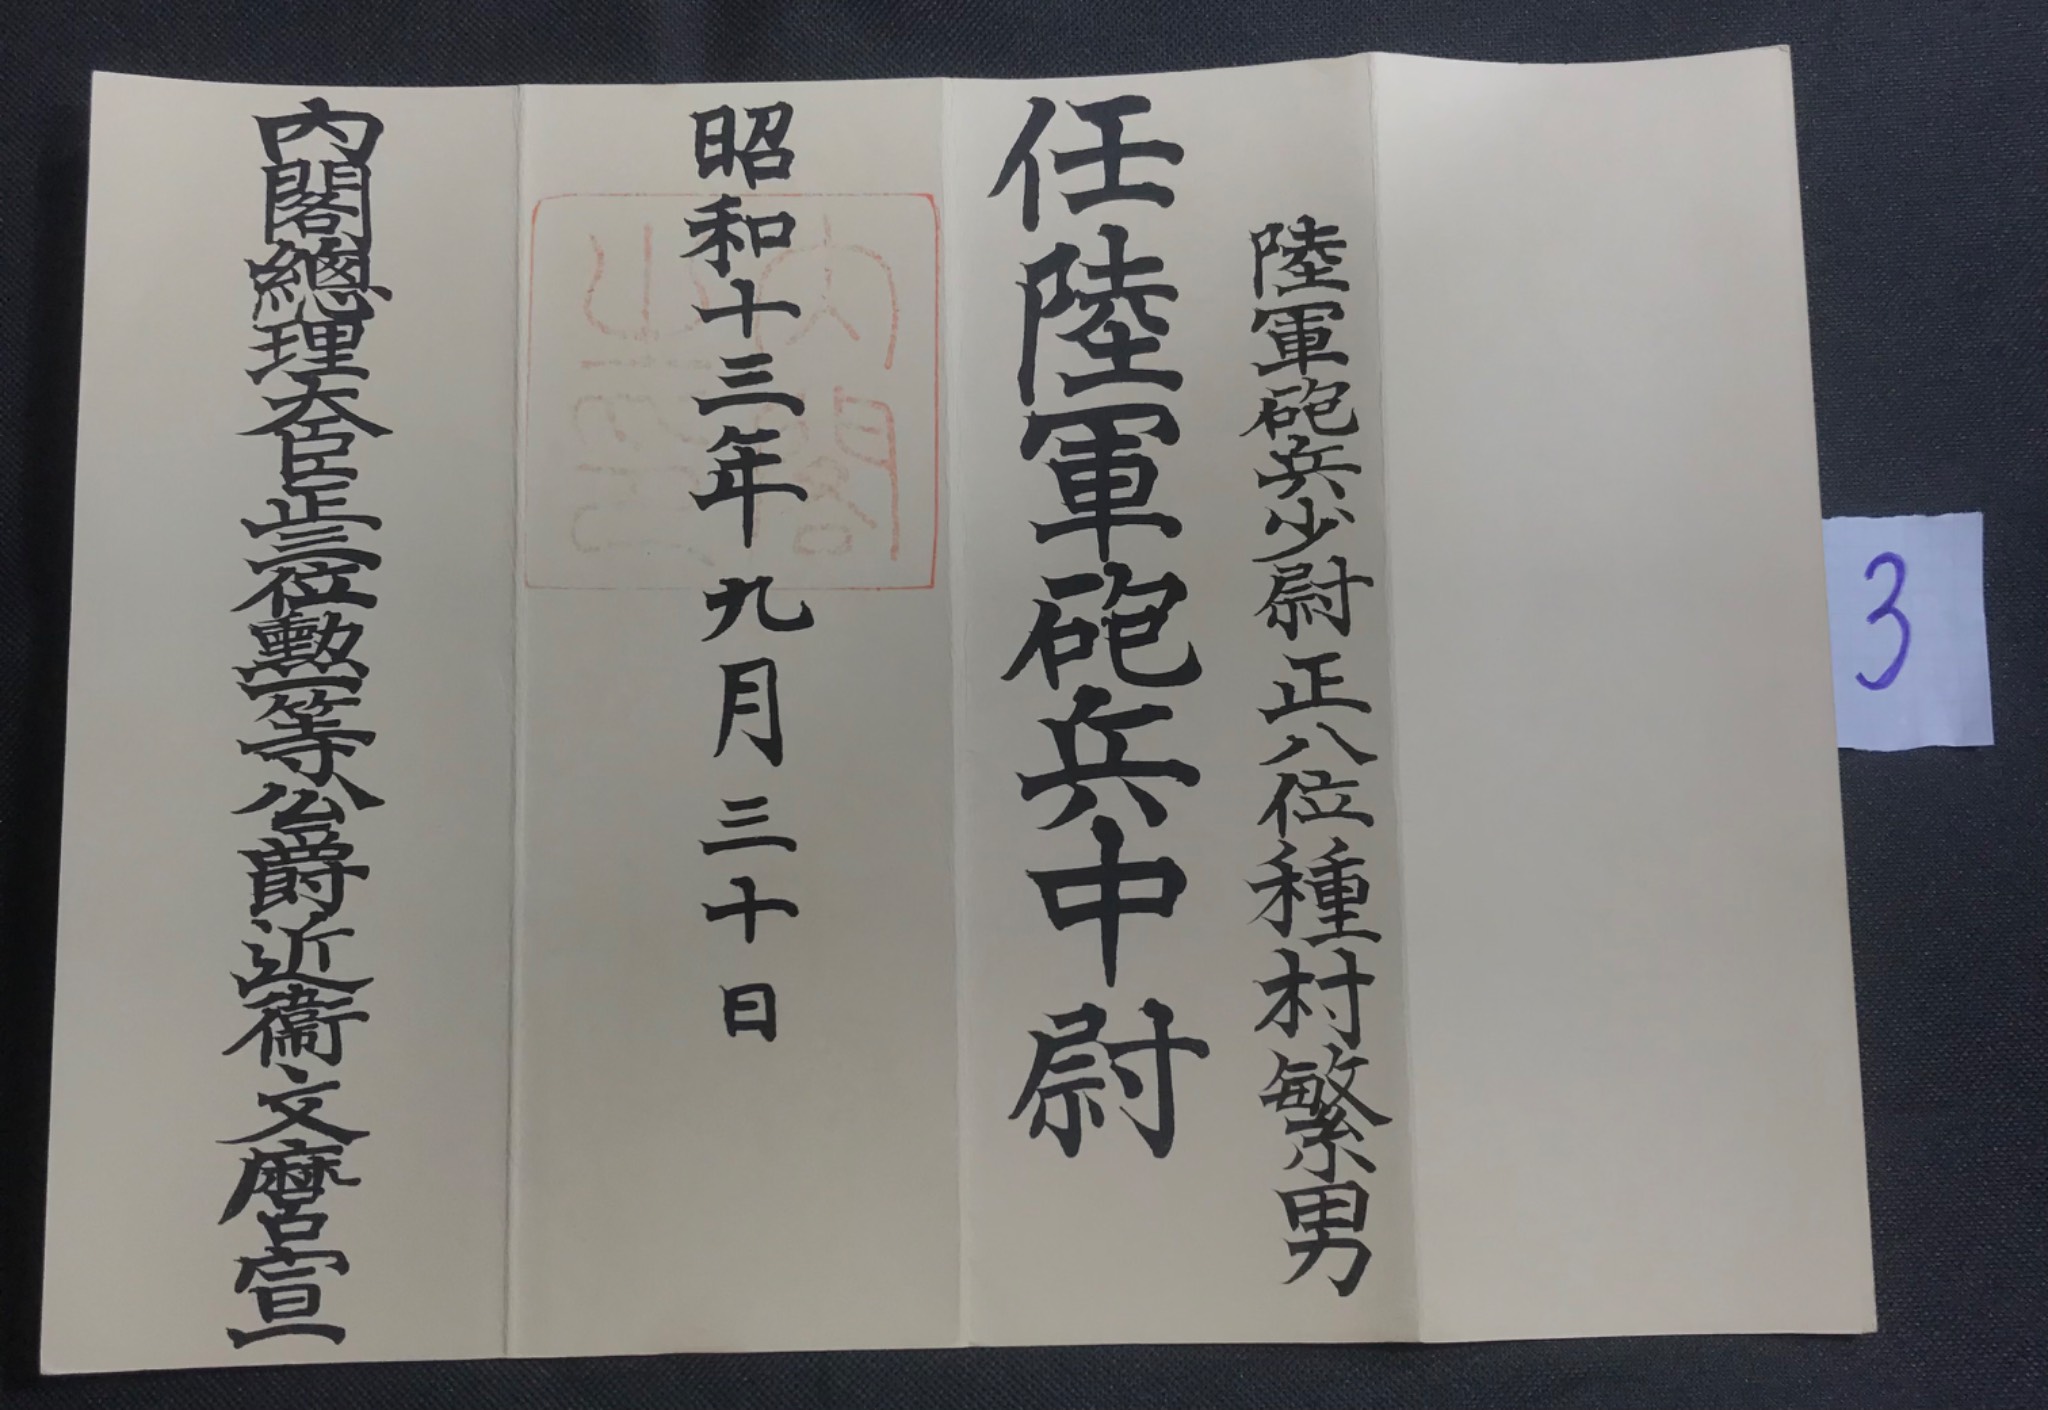 陸軍砲兵少尉正八位種村繁男
任陸軍砲兵中尉
昭和十三年九月三十日
内閣之印
內閣總理大臣正三位勲一等公爵近衞文麿宣
3